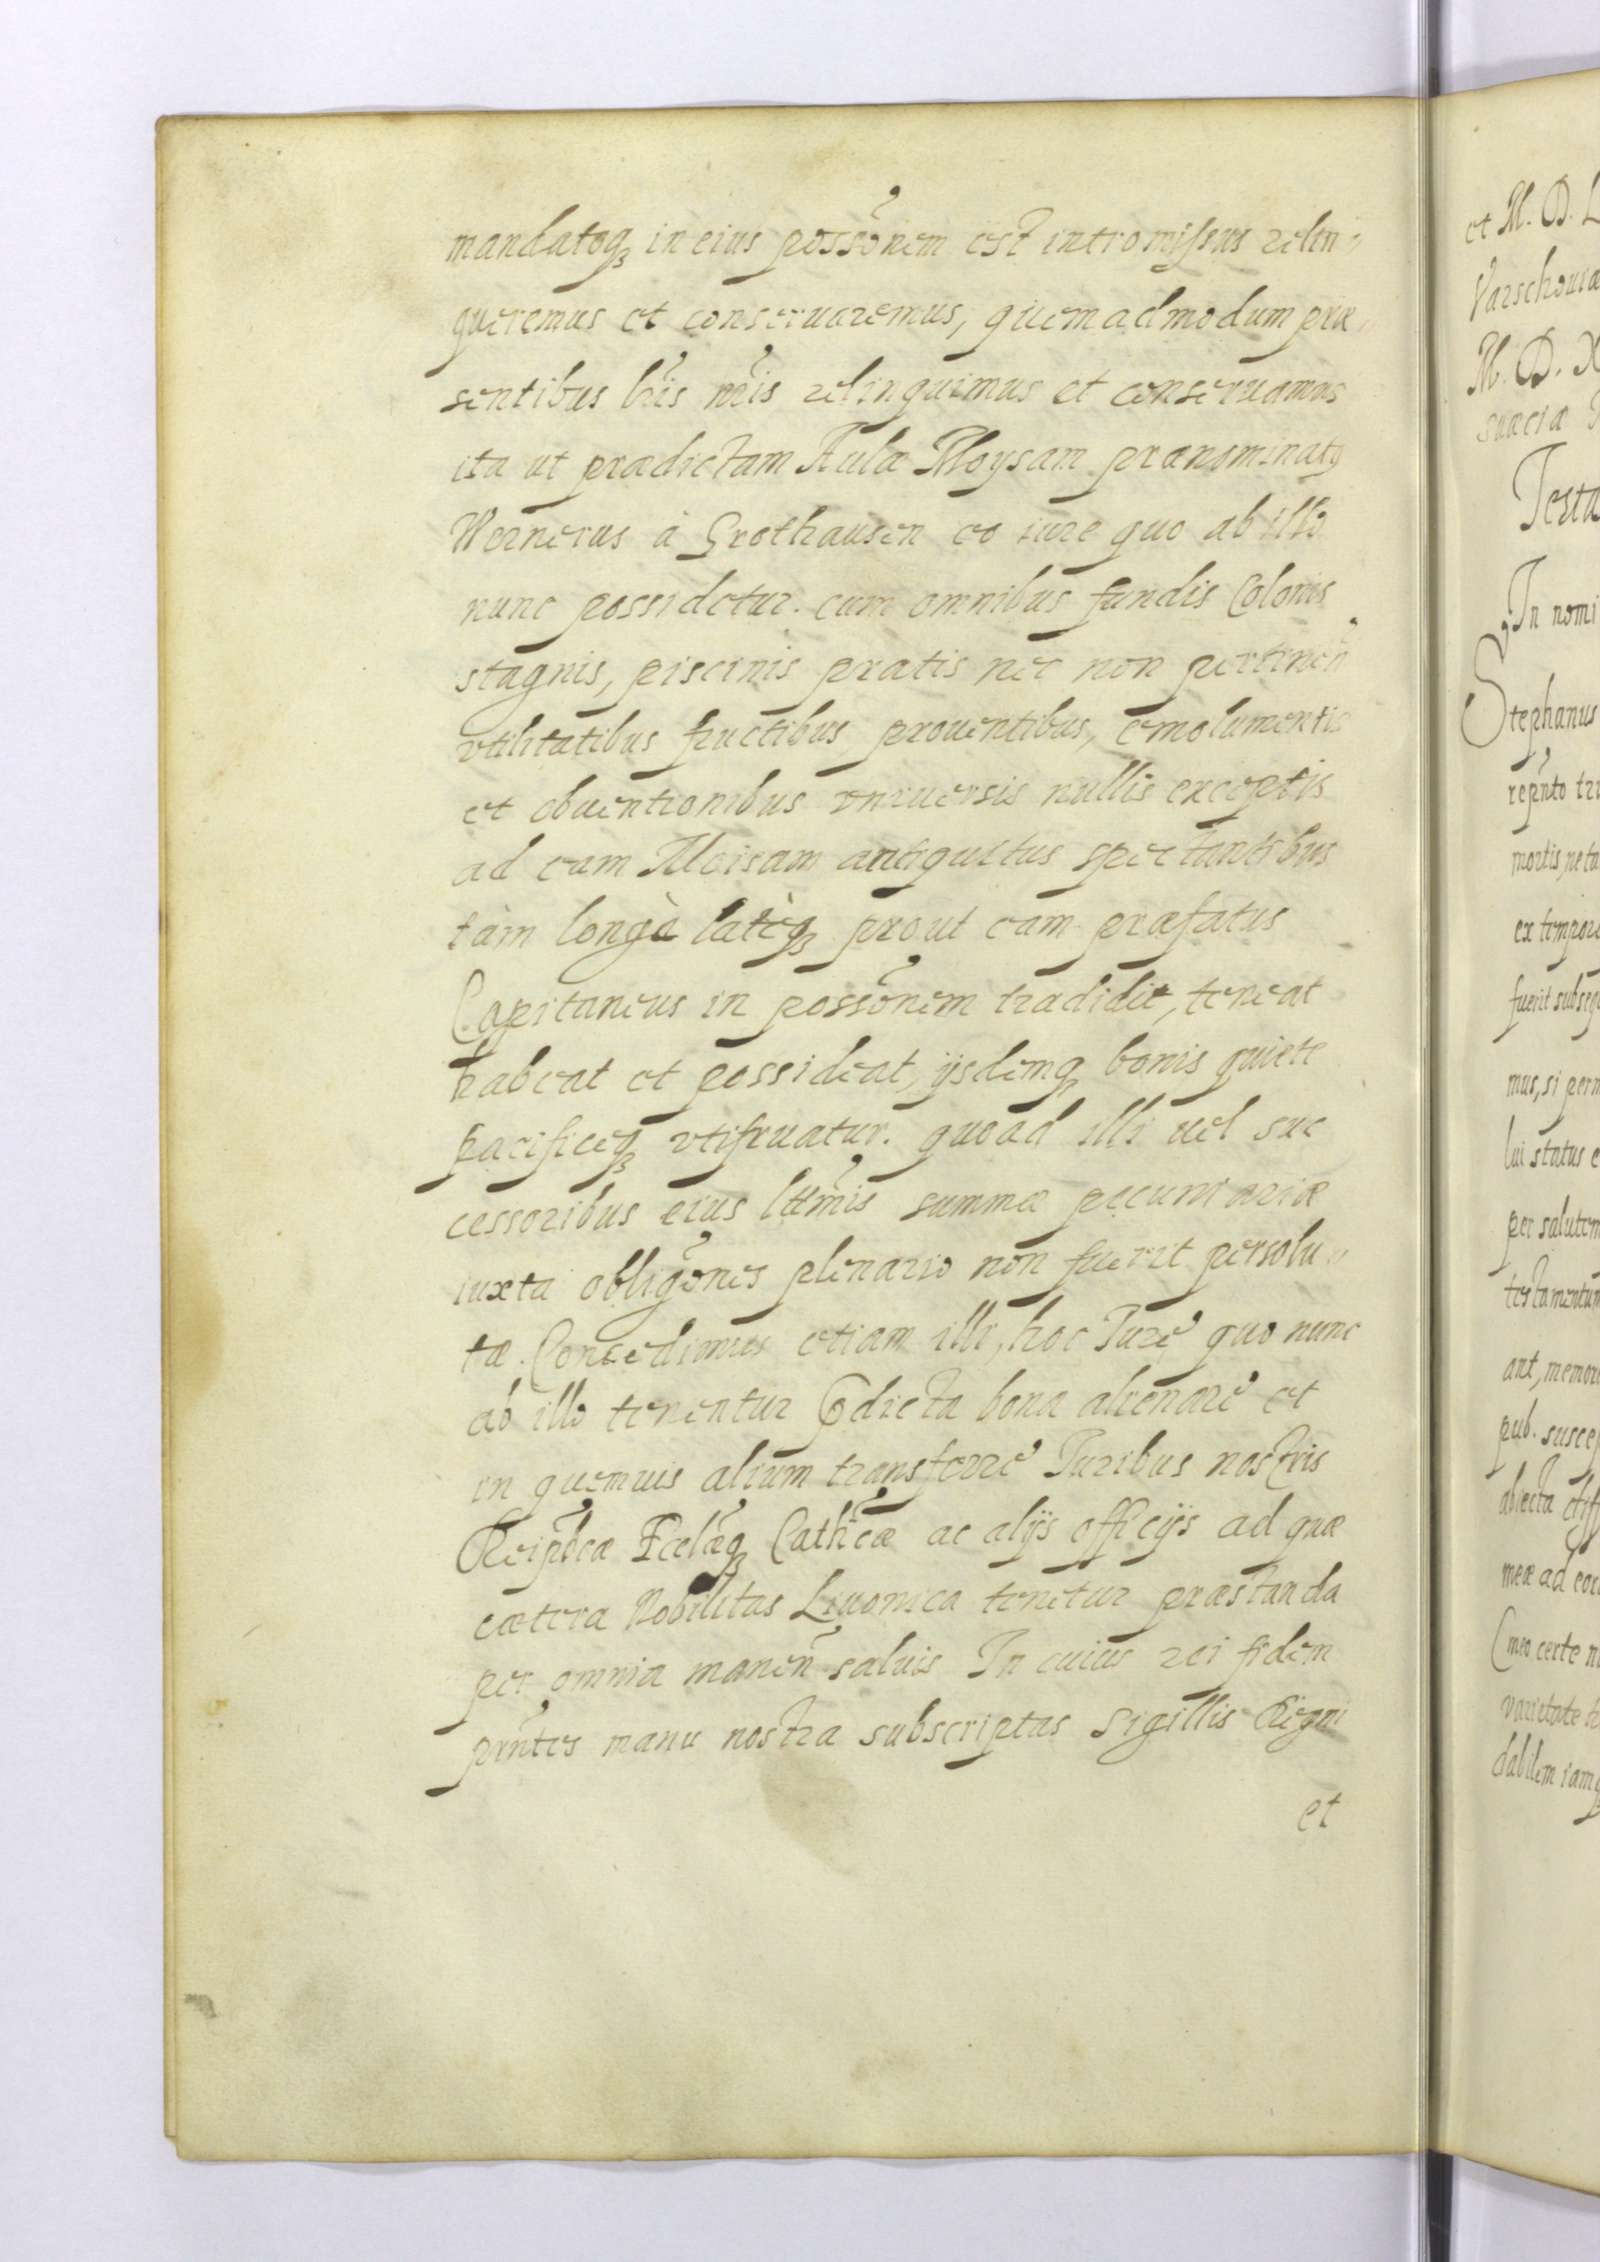 mandatoq₃ in eius possõnem est intromissus relin„
queremus et conseruaremus, quemadmodum præ„
sentibus lris nris relinquimus et conseruamus
ita ut prædictam Aulæ Moysam prænominatus
Wernerus à Grothausen eo iure quo ab illo
nunc possidetur. cum omnibus fundis Colonis
stagnis, piscinis pratis nec non pertinen̄
vtilitatibus fructibus prouentibus, emolumentis
et obuentionibus vniuersis nullis exceptis
ad eam Moisam antiquitus spectantibus
tàm longè latèq₃ prout eam præfatus
Capitaneus in possõnem tradidit, teneat
habeat et possideat, ijsdemq₃ bonis quiete
pacificeq₃ vtifruatur. quoad illi uel suc
cessoribus eius lttmis summæ pecuniariæ
iuxta obligõnes plenario non fuerit persolu„
tæ. Concedimus etiam illi, hoc Iure quo nunc
ab illo tenentur pdicta bona alienare et
in quemuis alium transferre Iuribus nostris
Reipbcæ Ecclæq₃ Cathcæ ac alijs officijs ad quæ
cætera Nobilitas Liuonica tenetur præstanda
per omnia manen̄ saluis In cuius rei fidem
pñtes manu nostra subscriptas Sigillis Regni
et
et M. D. L
Varschouiæ
M. D. X
suæciæ
Testa
In nomi
Stephanus
repnto tri
mortis, neta
ex tempore
fuerit subseq
mus, si perm
lui status e
per salutem
testamentum
ant, memor
pub. suscep
abiecta diff
meæ ad cor
meo certe n
varietate h
dabilem iam